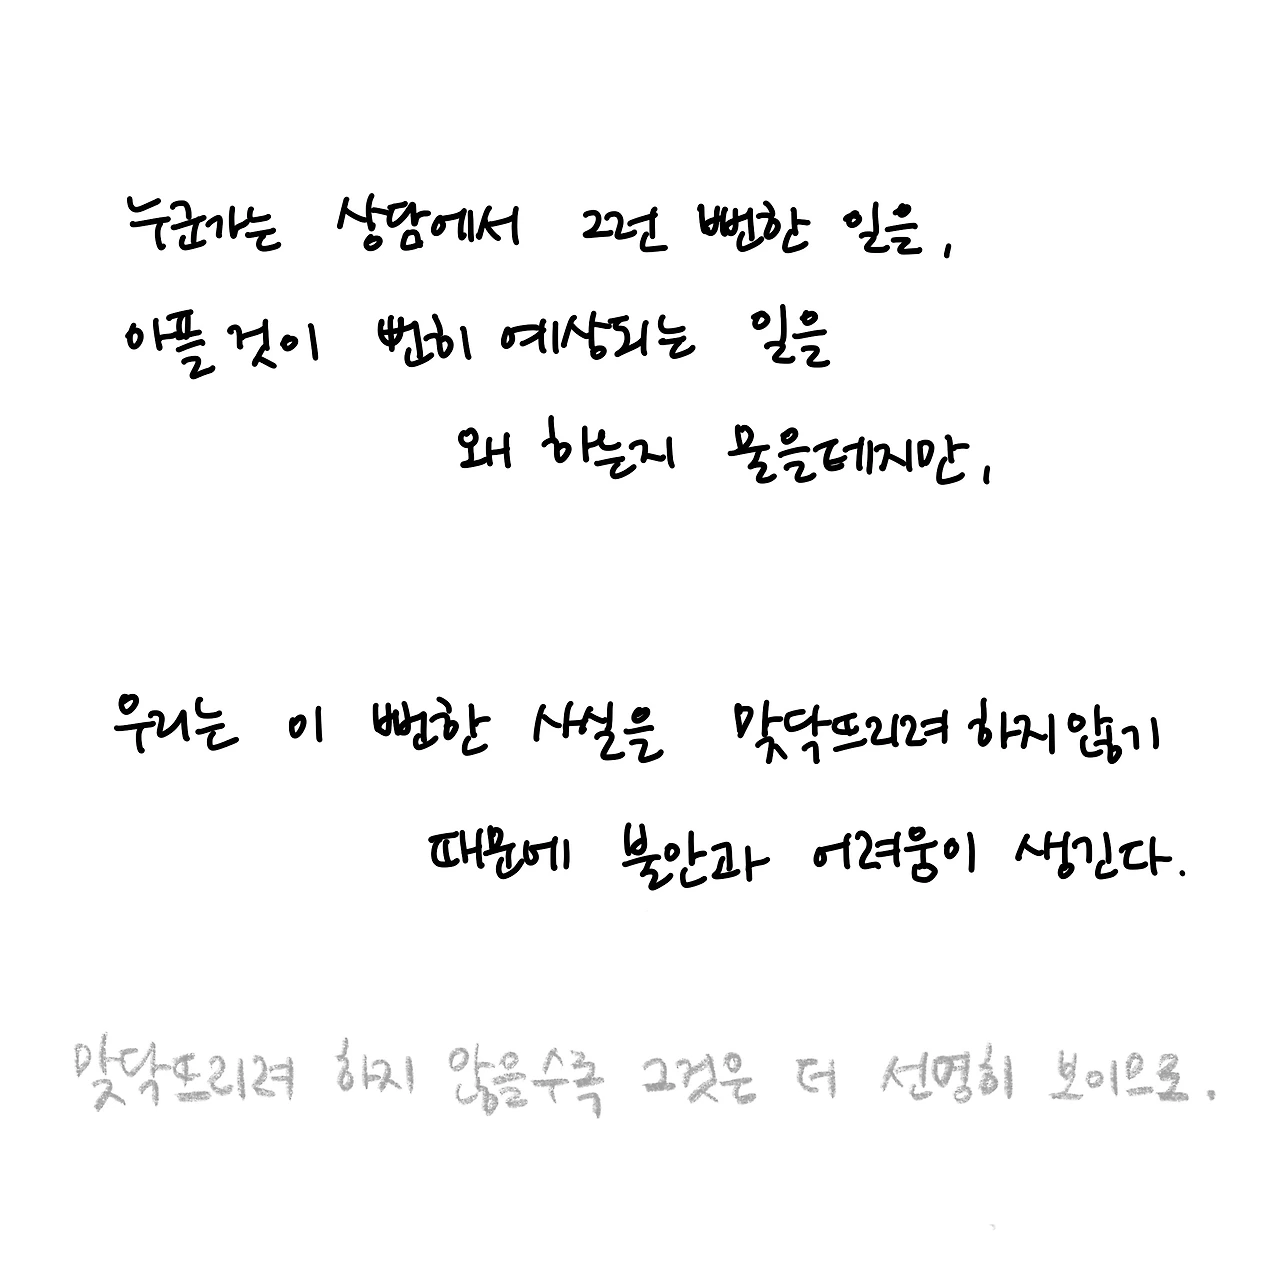 누군가는 상담에서 그런 뻔한 일을,
아플 것이 뻔히 예상되는 일을
왜 하는지 물을테지만,
우리는 이 뻔한 사실을 맞닥뜨리려 하지 않기
때문에 불안과 어려움이 생긴다.
맞닥뜨리려 하지 않을수록 그것은 더 선명히 보이므로.